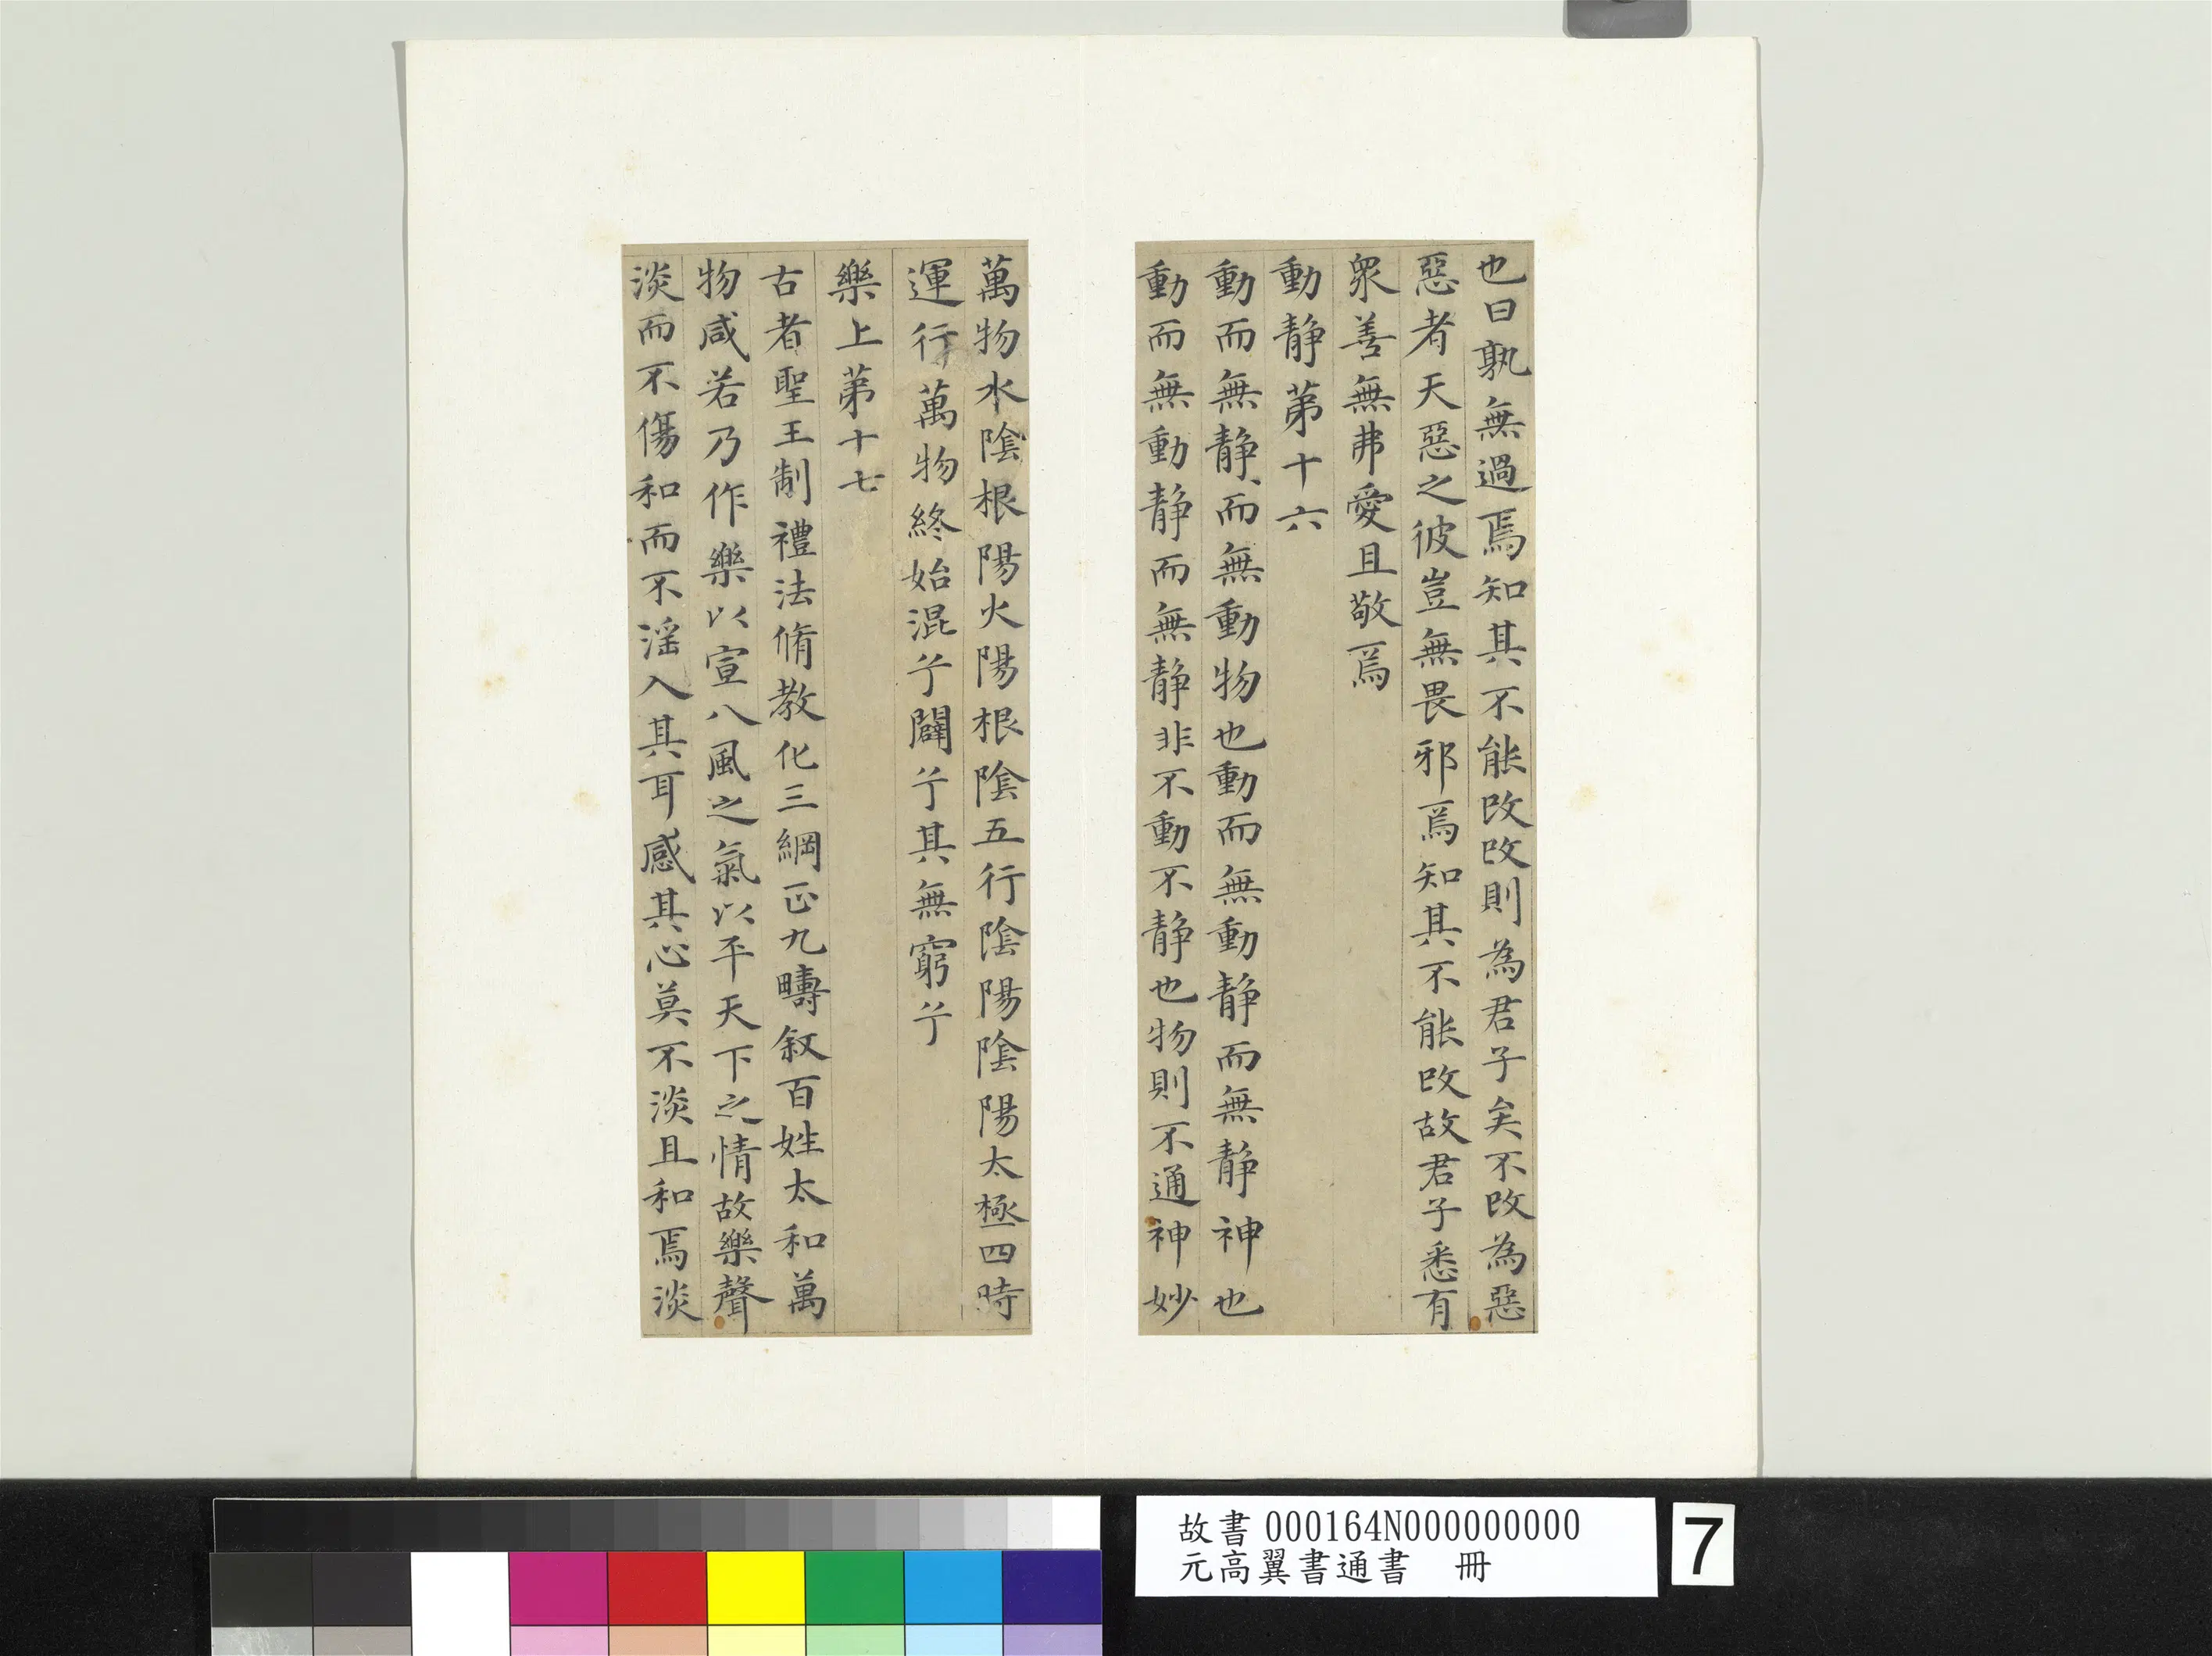 也曰孰無過焉知其不能改改則為君子矣不改為惡
惡者天惡之彼豈無畏邪焉知其不能改故君子悉有
衆善無弗愛且敬焉
動静第十六
動而無静静而無動物也動而無動静而無静神也
動而無動静而無静非不動不静也物則不通神妙
萬物水陰根陽火陽根陰五行陰陽陰陽太極四時
運行萬物終始混兮闢兮其無窮兮
樂上第十七
古者聖王制禮法脩教化三綱正九疇叙百姓太和萬
物咸若乃作樂以宣八風之氣以平天下之情故樂聲
淡而不傷和而不淫入其耳感其心莫不淡且和焉淡
故書 000164N000000000
元高翼書通書 冊
7